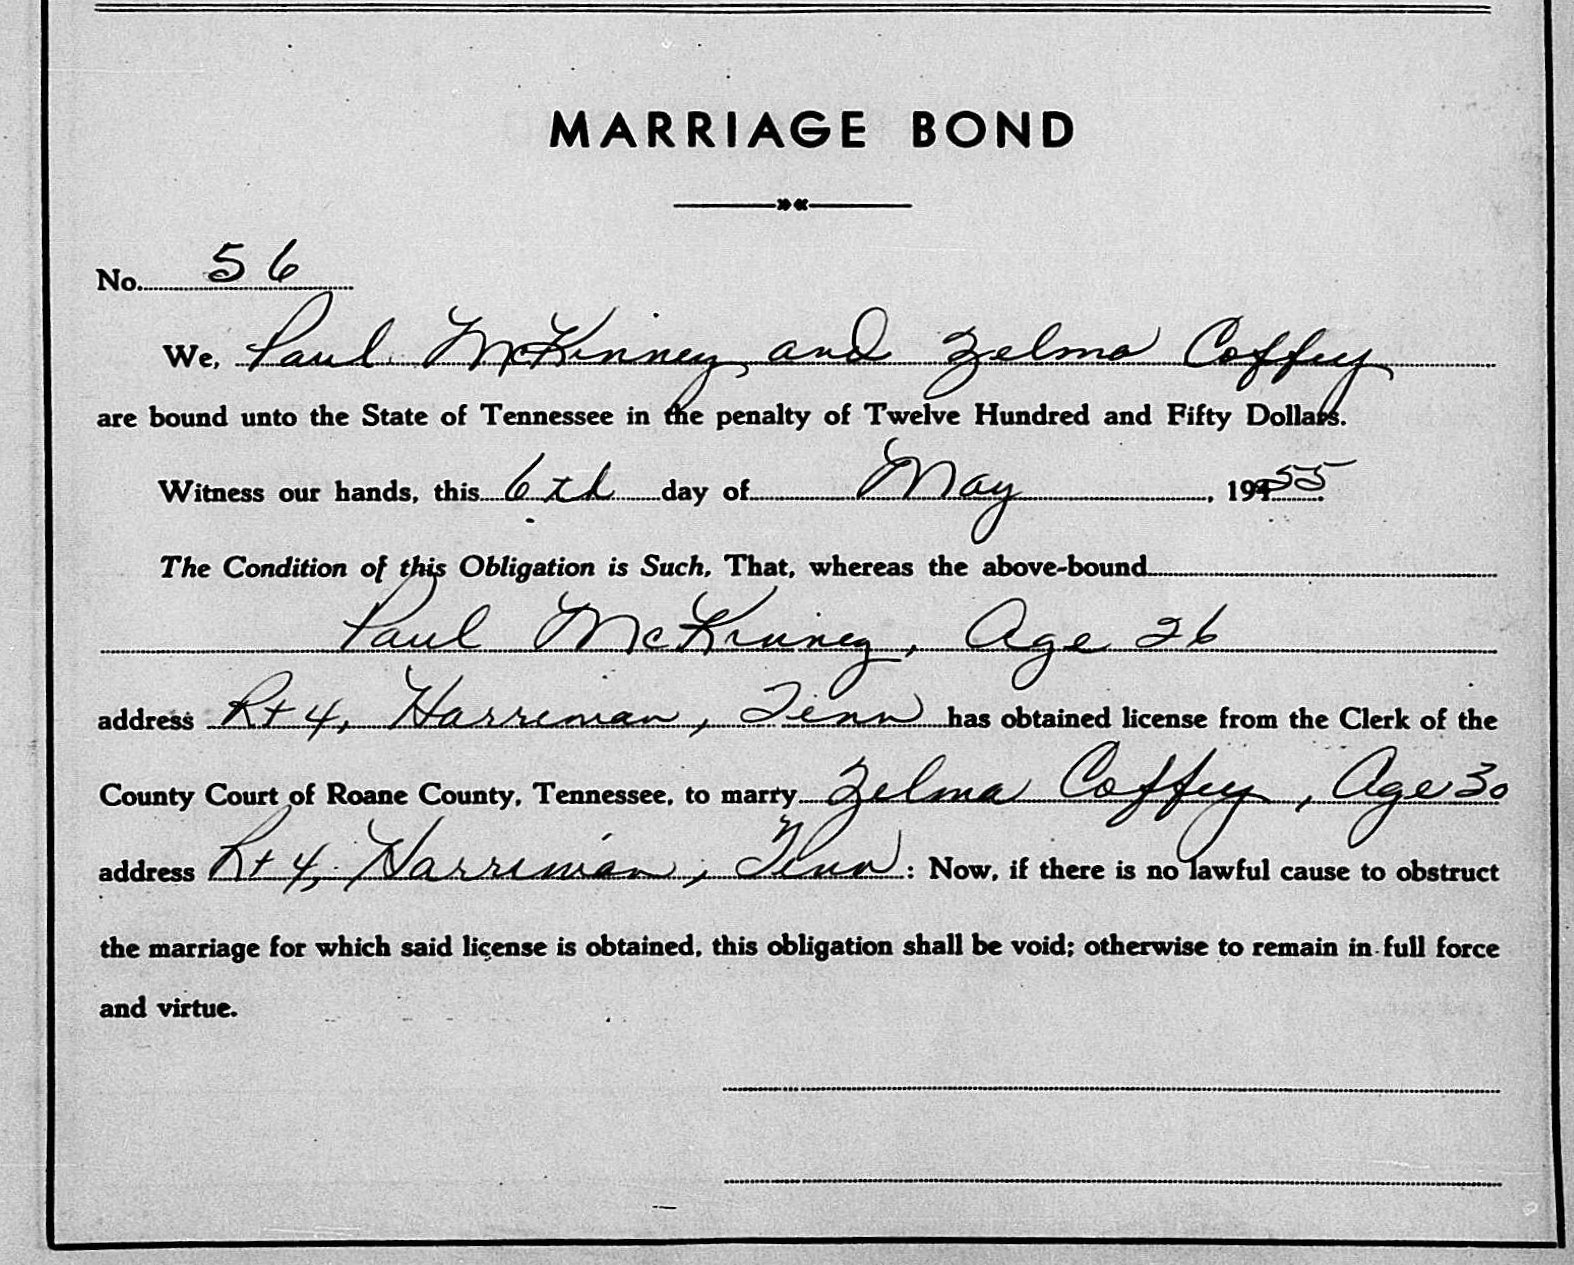 MARRIAGE BOND
No. 56
We, Paul McKinney and Zelma Coffey
are bound unto the State of Tennessee in the penalty of Twelve Hundred and Fifty Dollars.
Witness our hands, this 6th day of May, 1955.
The Condition of this Obligation is Such, That, whereas the above-bound
Paul McKinney, Age 26
address Rt 4, Harriman, Tenn has obtained license from the Clerk of the
County Court of Roane County, Tennessee, to marry Zelma Coffey, Age 30
address Rt 4, Harriman, Tenn: Now, if there is no lawful cause to obstruct
the marriage for which said license is obtained, this obligation shall be void; otherwise to remain in full force
and virtue.